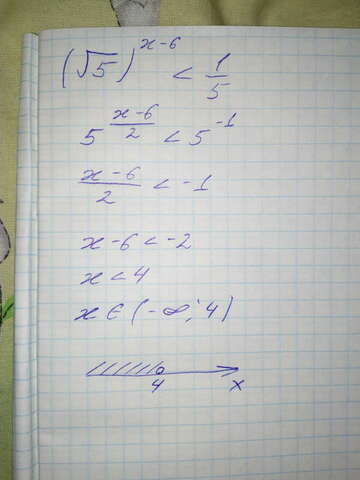 (√5)^(x-6) < 1/5
5^((x-6)/2) < 5^(-1)
(x-6)/2 < -1
x-6 < -2
x < 4
x ∈ (-∞; 4)
4 x